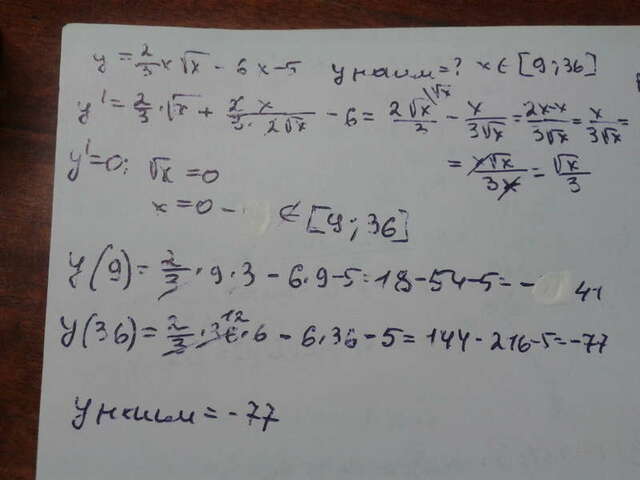 y = 2/3 x √x - 6x - 5 y наим = ? x ∈ [9; 36]
y' = 2/3 · √x + 2·x/3·2√x - 6 = 2√x/3 \√x - x/3√x = 2x-x/3√x = x/3√x =
= x√x/3x = √x/3
y' = 0; √x = 0
x = 0 - ∉ [9; 36]
y(9) = 2/3 · 9 · 3 - 6·9 - 5 = 18 - 54 - 5 = - 41
y(36) = 2/3 · 36 12 · 6 - 6·36 - 5 = 144 - 216 - 5 = -77
y наим = -77